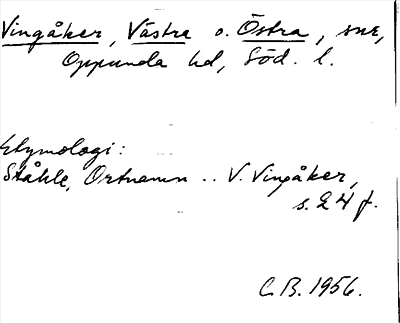 Vingåker, Västra o. Östra, sne,
Oppunda hd, Söd. l.
Etymologi:
Ståhle, Ortnamn .. V. Vingåker,
s. 24 f.
C.B. 1956.